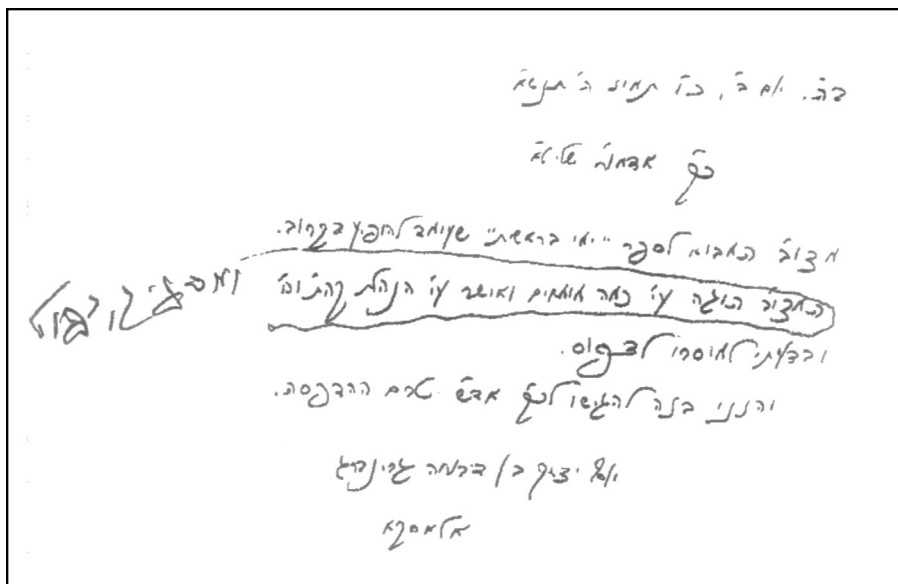 ב"ה. יום ב', כ"ו תמוז ה'תנש"א
כ"ק אדמו"ר שליט"א
מצו"ב המבוא לספר "ימי בראשית" שעומד להופיע בקרוב.
המצו"ב הוגה ע"י כמה מומחים ואושר ע"י הנהלת קה"ת
ובדעתי למוסרו לדפוס.
והנני בזה להגישו לכ"ק אד"ש טרם ההדפסה.
יוסף יצחק גרינברג
אלאסקא